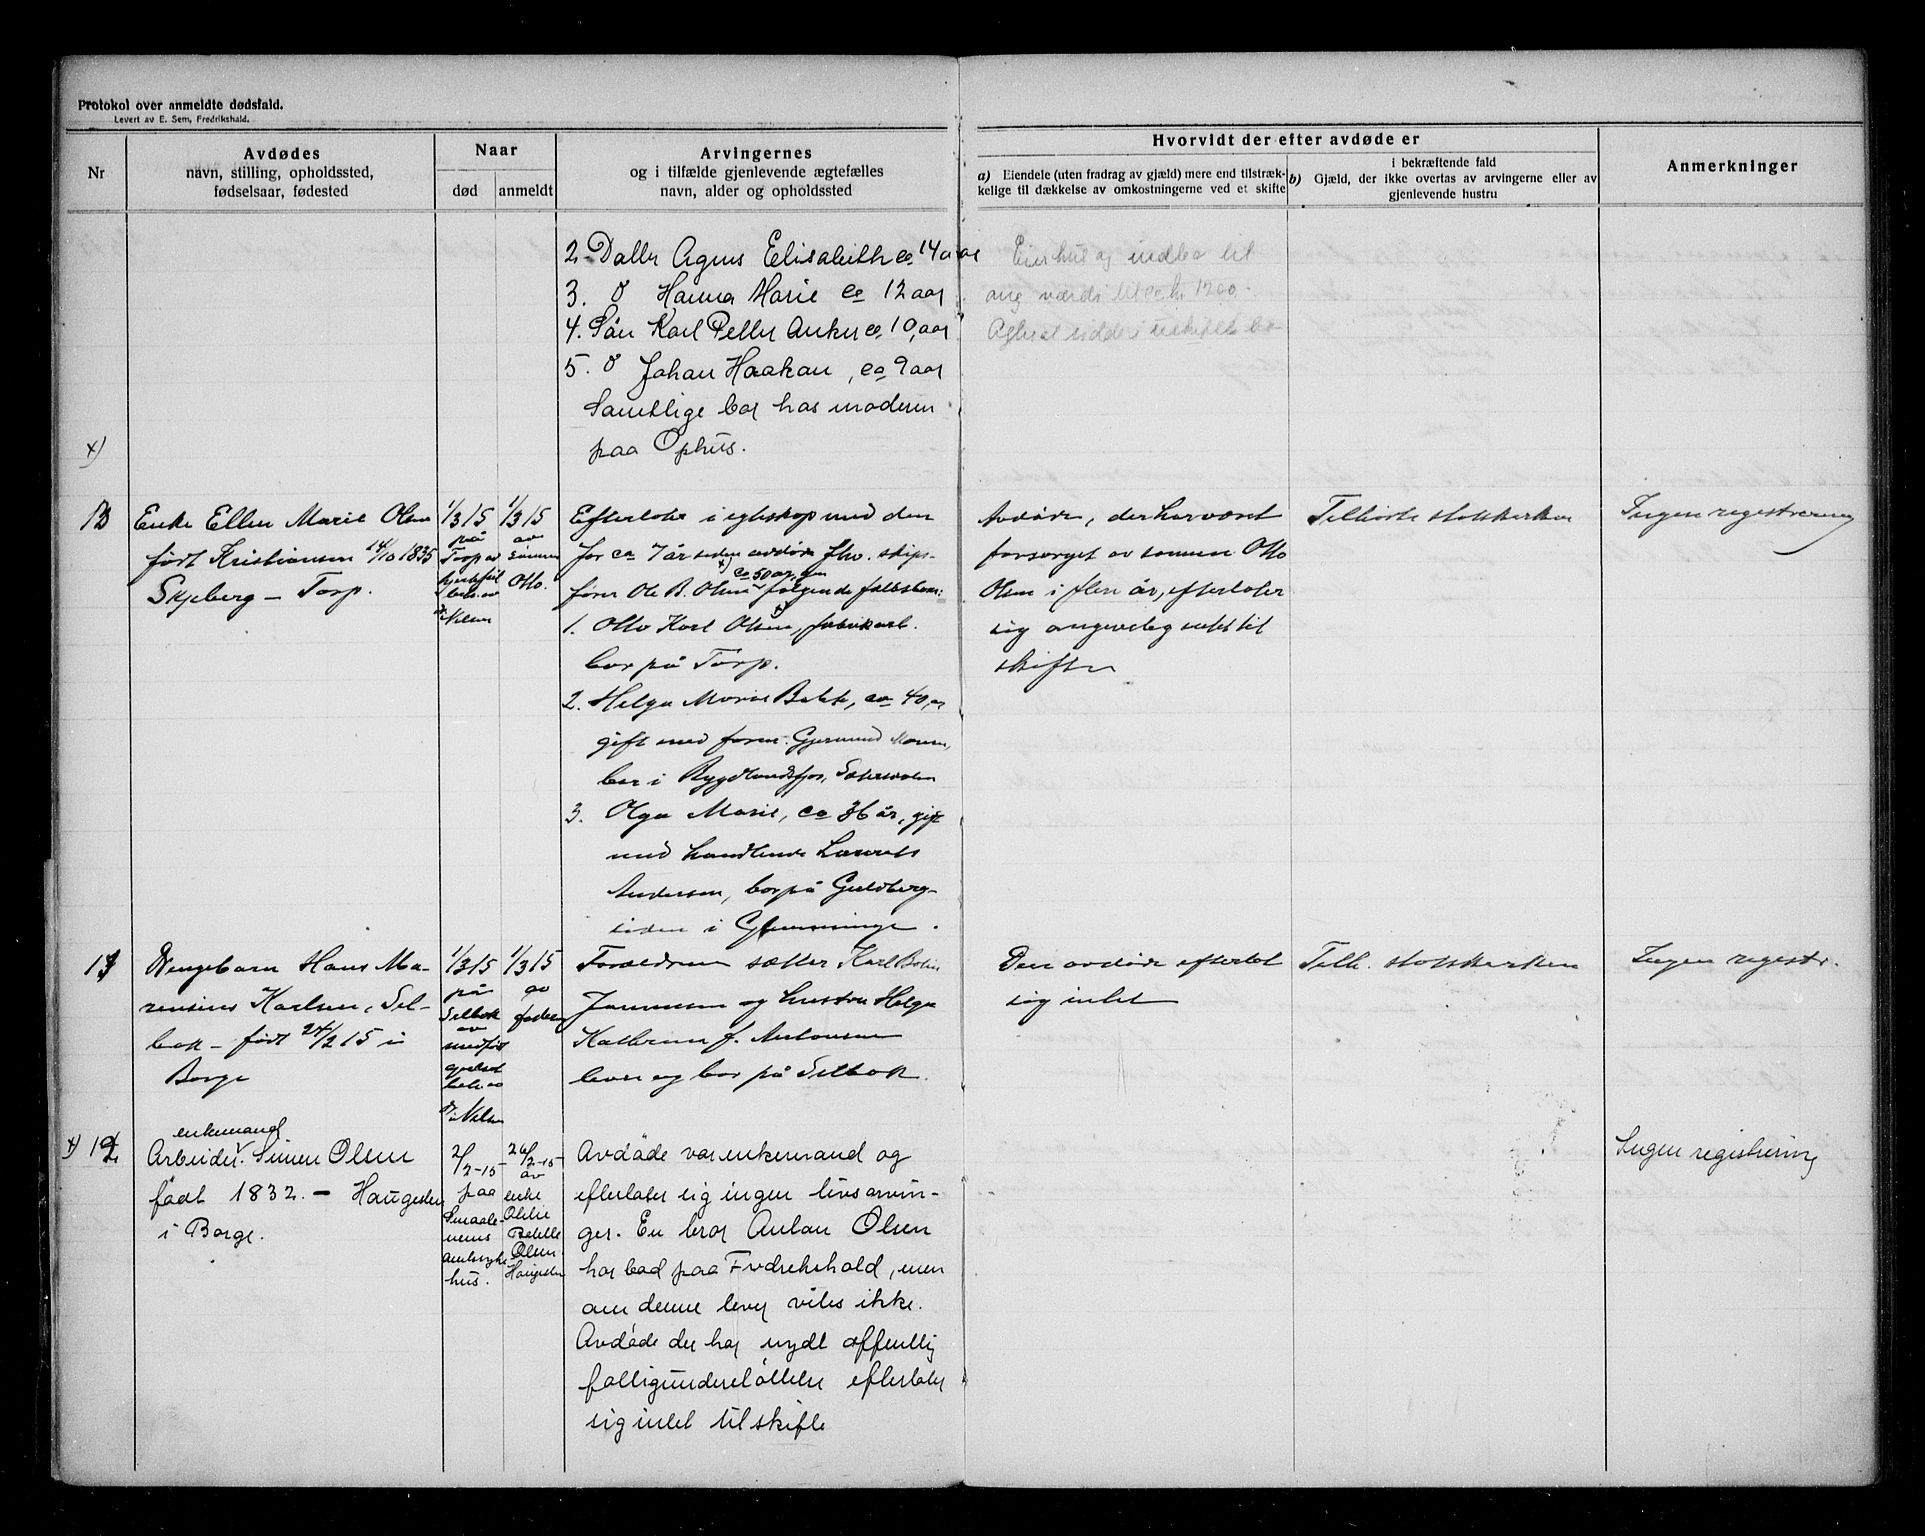 Protokol over anmeldte dødsfald.
Levert av E. Sem, Fredrikshald.
Nr
Avdødes
navn, stilling, opholdssted,
fødselsaar, fødested
Naar
død
anmeldt
Arvingernes
og i tilfælde gjenlevende ægtefælles
navn, alder og opholdssted
Hvorvidt der efter avdøde er
a) Eiendele (uten fradrag av gjæld) mere end tilstræk-
kelige til dækkelse av omkostningerne ved et skifte
i bekræftende fald
b) Gjæld, der ikke overtas av arvingerne eller av
gjenlevende hustru
Anmerkninger
2. Datter Agnes Elisabeth ca 14 aar
3. Hanna Marie ca 12 aar
4. Sön Karl Petter Anker ca 10, aar
5. Johan Haakon, ca 9 aar
Samtlige bor hos moderen
paa Ophus.
indbo til
værdi til ca kr 1200
x)
Enke Ellen Marie Olsen
født Kristiansen 14/10 1835
Skjeberg – Torp.
1/3 15
på
Torp av
hjertefeil
beh. av
dr Nelsen
1/3 15
av
sønnen
Otto.
Efterlater i egteskap med den
for ca 7 år siden avdøde fhv. skips-
fører Ole B. Olsen følgende fællesbarn:
ca 50 år, gm
1. Otto Karl Olsen, fabrikarb.
bor på Torp.
2. Helga Marie Bakke, ca 40, år
gift med form. Gjermund
bor i Bygdlandsfjor, Sætersdalen
3. Olga Marie, ca 36 år, gift
med handlende Laurits
Andersen, bor på Guldberg-
siden i Glemminge.
Avdøde, der har været
forsørget av sønnen Otto
Olsen i flere år, efterlater
sig angivelig intet til
skifte
Tilhørte statskirken
Ingen registrering
13
Drengebarn Hans Ma-
rensius Karlsen, Sel-
bak – født 24/2 15 i
Borge
1/3 15
på
Selbak
av
medfødt
beh. av
dr Nelsen
1/3 15
av
faderen
Forældrene sætter Karl
og hustru Helga
Kathrine f. Antonsen
lever og bor på Selbak.
Den avdøde efterlot
sig intet
Tilh. statskirken
Ingen registr.
x) 12
enkemand
Arbeider Simen Olsen
født 1832. – Haugesten
i Borge.
2/2-15
paa
Smaale-
nenes
amtssyke-
hus.
26/2-15
av
enke
Olsen
Haugesten
Avdøde var enkemand og
efterlater sig ingen livsarvin-
ger. En bror Anton Olsen
har bod paa Fredrikshald, men
om denne lever vites ikke.
Avdøde der har nydt offentlig
fattigunderstøttelse efterlater
sig intet til skifte
Ingen registrering